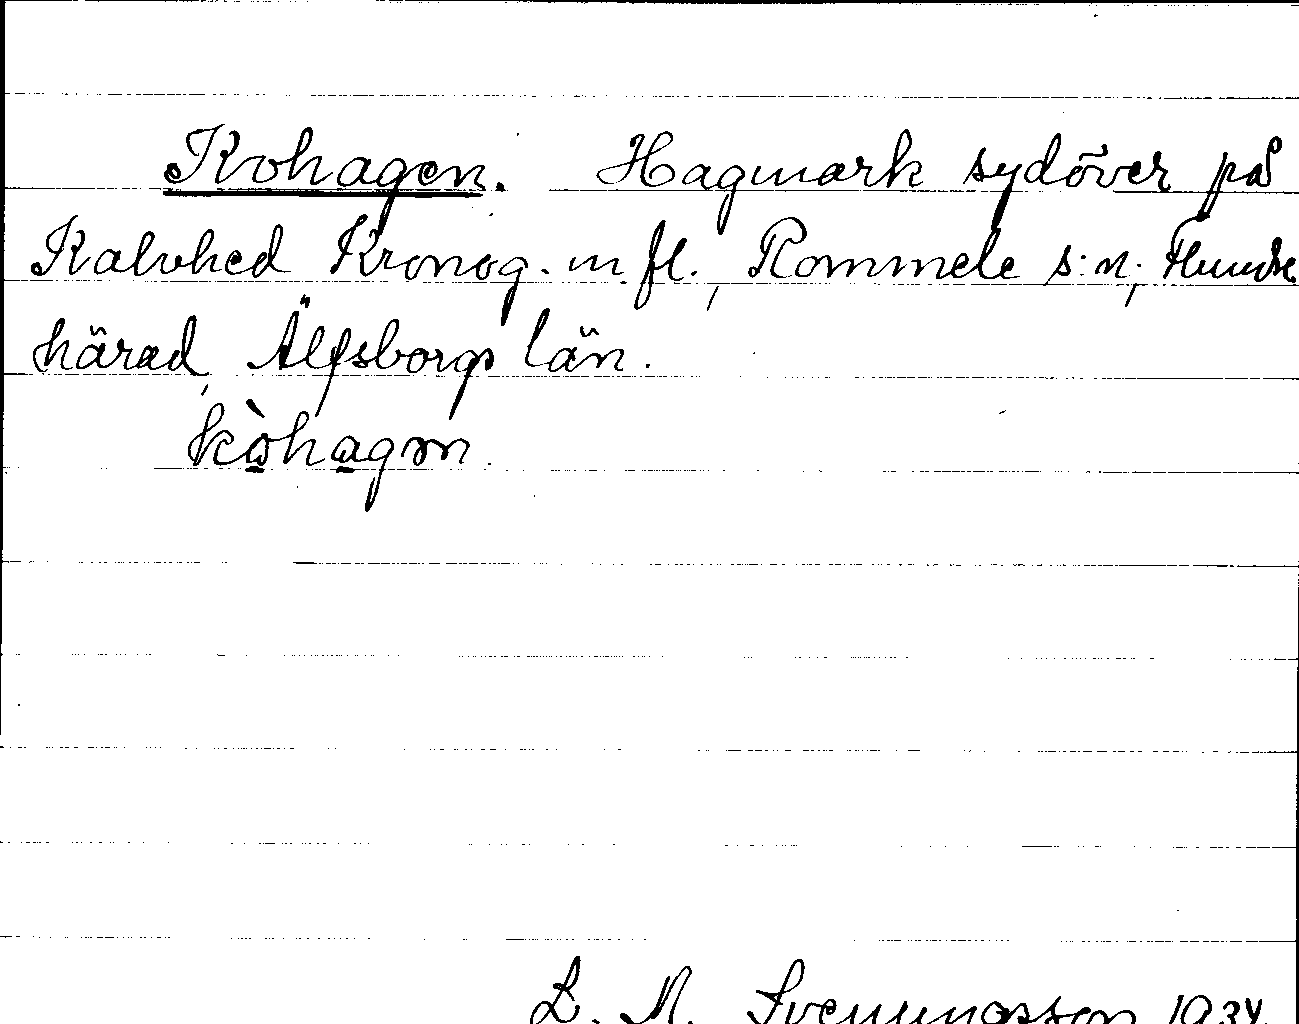 Kohagen. Hagmark sydöver på
Kalvhed Kronog. m. fl., Rommele s:n; Flundre
härad, Älfsborgs län.
kòhagen.
L. M. Svenungsson 1934.